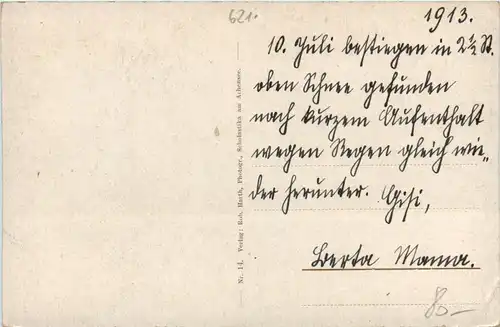 621.
1913.
10. Juli bestiegen in 2½ St.
oben Schnee gefunden
nach kurzem Aufenthalt
wegen Regen gleich wie-
der herunter. Gisi,
Berta Mama.
Nr. 14. Verlag: Rob. Harth, Photogr., Scholastika am Achensee.
80-